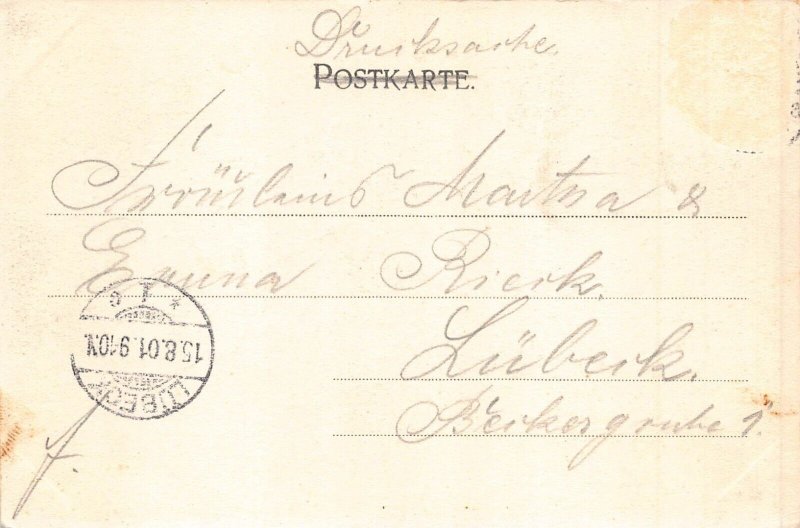 Drucksache.
POSTKARTE.
Fräuleins Martha &
Emma Rieck.
Lübeck.
Beckergrube 1.
LÜBECK
15.8.01.9-10V.
* 1 c
f.